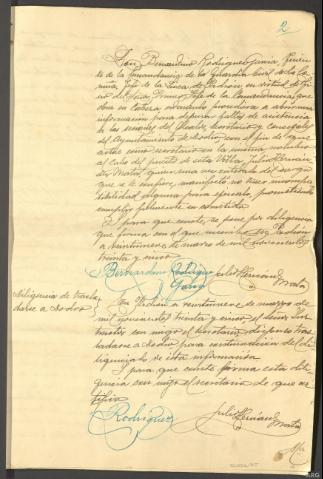 2
Don Bernardino Rodriguez Garcia, Tenien-
te de la Comandancia de la Guardia Civil de la Co-
ruña, Jefe de la Linea de Padron en virtud de
del Señor Primer Jefe de la Comandancia que
obra en cabeza ordenando procediera a abrir una
información para depurar faltas de asistencia
a las sesiones del Alcalde, Secretario y concejales
del Ayuntamiento de Dodro, con el fin de que
actue como secretario en la misma
al cabo del puesto de esta Villa, Julio Fernan-
dez Mata, quien una vez enterado del cargo
que se le confiere, manifestó no tener incompa-
tibilidad alguna para ejercerlo, prometiendo
cumplir fielmente su cometido
Y para que conste, se pone por diligencia
que firma con el que suscribe en Padrón
a veintinueve de marzo de mil novecientos
treinta y cinco
Bernardino Rodriguez
Garcia
Julio Fernandez
Mata
Diligencia de trasla-
darse a Dodro
En Padrón a veintinueve de marzo de
mil novecientos treinta y cinco el Señor Ins-
tructor con migo el secretario dispuso tras-
ladarse a Dodro para continuación de di-
ligencias de esta información
Y para que conste firma esta dili-
gencia con migo el secretario de que cer-
tifico
Rodriguez
Julio Fernandez
Mata
ARG